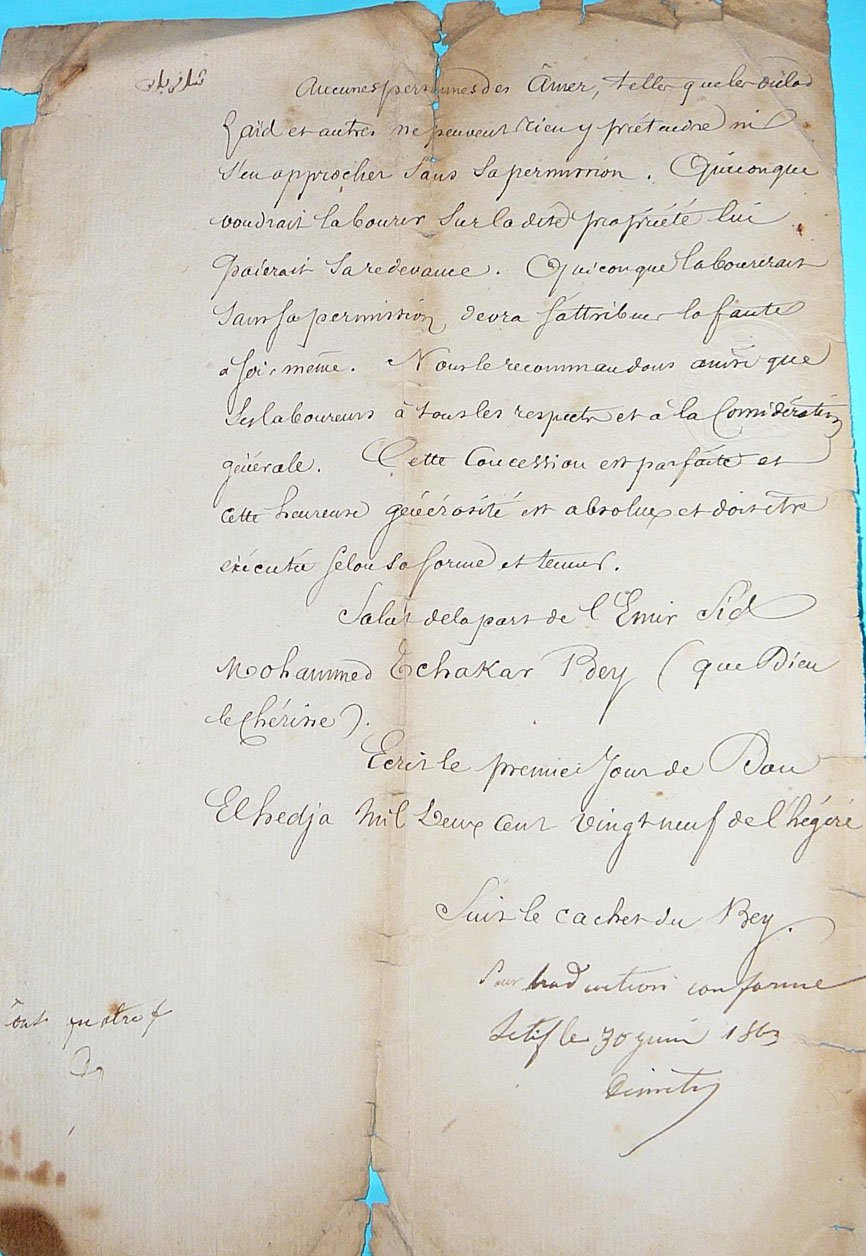 Aucunes personnes des Âmer, telles que les Oulad
Zaïd et autres ne peuvent rien y prétendre ni
s'en approcher sans sa permission. Quiconque
voudrait labourer sur la dite propriété lui
paierait sa redevance. Quiconque labourerait
sans sa permission devra s'attribuer la faute
à soi-même. Nous le recommandons ainsi que
ses laboureurs à tous les respects et à la Considération
générale. Cette Concession est parfaite et
cette heureuse générosité est absolue et doit être
exécutée selon sa forme et teneur.
Salut de la part de l'Emir Sid
Mohammed Echakar Bey (que Dieu
le Chérisse).
Ecrit le premier Jour de Dou
Elhedja Mil Deux cent vingt neuf de l'hégire
Suit le cachet du Bey.
Pour traduction conforme
Setif le 30 juin 1863